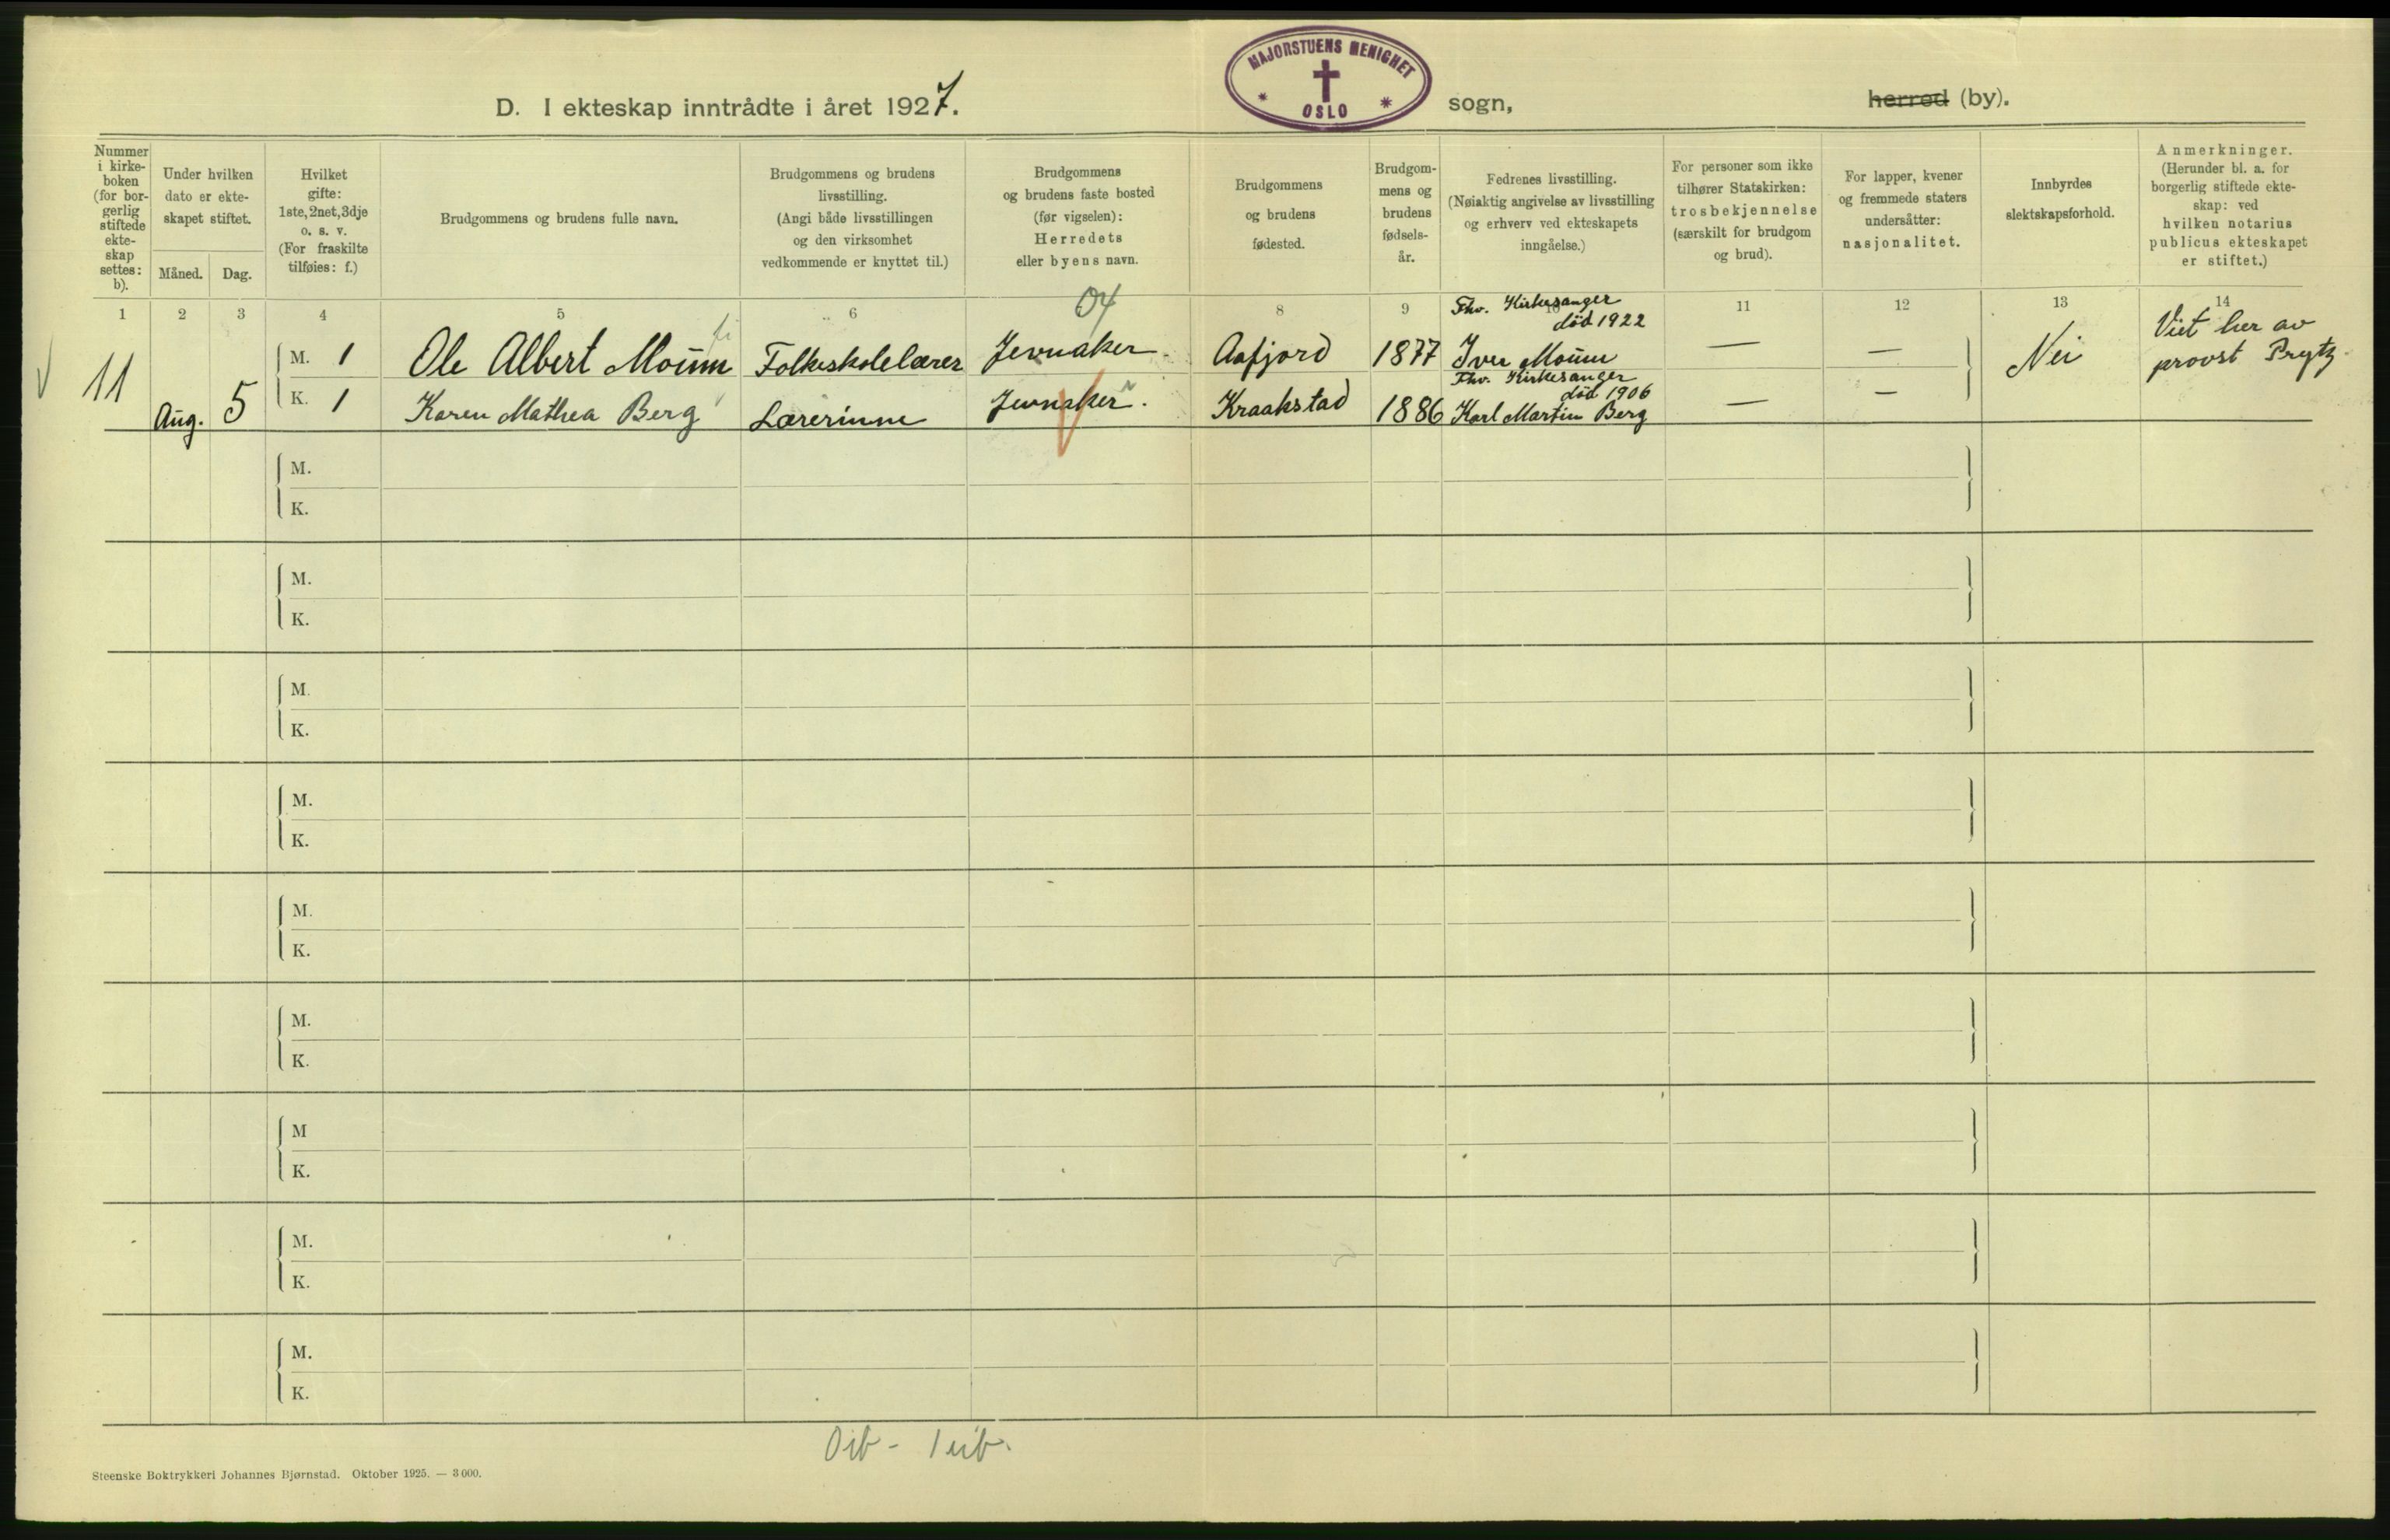 D. I ekteskap inntrådte i året 1927.
MAJORSTUENS MENIGHET
OSLO
sogn,
herred (by).
Nummer
i kirke-
boken
(for bor-
gerlig
stiftede
ekte-
skap
settes:
b).
Under hvilken
dato er ekte-
skapet stiftet.
Måned.
Dag.
Hvilket
gifte:
1ste, 2net, 3dje
o. s. v.
(For fraskilte
tilføies: f.)
Brudgommens og brudens fulle navn.
Brudgommens og brudens
livsstilling.
(Angi både livsstillingen
og den virksomhet
vedkommende er knyttet til.)
Brudgommens
og brudens faste bosted
(før vigselen):
Herredets
eller byens navn.
Brudgommens
og brudens
fødested.
Brudgom-
mens og
brudens
fødsels-
år.
Fedrenes livsstilling.
(Nøiaktig angivelse av livsstilling
og erhverv ved ekteskapets
inngåelse.)
For personer som ikke
tilhører Statskirken:
trosbekjennelse
(særskilt for brudgom
og brud).
For lapper, kvener
og fremmede staters
undersåtter:
nasjonalitet.
Innbyrdes
slektskapsforhold.
Anmerkninger.
(Herunder bl. a. for
borgerlig stiftede ekte-
skap: ved
hvilken notarius
publicus ekteskapet
er stiftet.)
1 2 3 4 5 6 8 9 10 11 12 13 14
04
11 Aug. 5
M. 1 Ole Albert Moum Folkeskolelærer Jevnaker. Aafjord 1877
Fhv. Kirkesanger
død 1922
Iver Moum
— —
K. 1 Karen Mathea Berg Lærerinne Jevnaker. Kraakstad 1886
Fhv. Kirkesanger
død 1906
Karl Martin Berg
— —
Nei
Viet her av
provst Prytz.
M.
K.
M.
K.
M.
K.
M.
K.
M.
K.
M.
K.
M
K.
M.
K.
M.
K.
Steenske Boktrykkeri Johannes Bjørnstad. Oktober 1925. — 3 000.